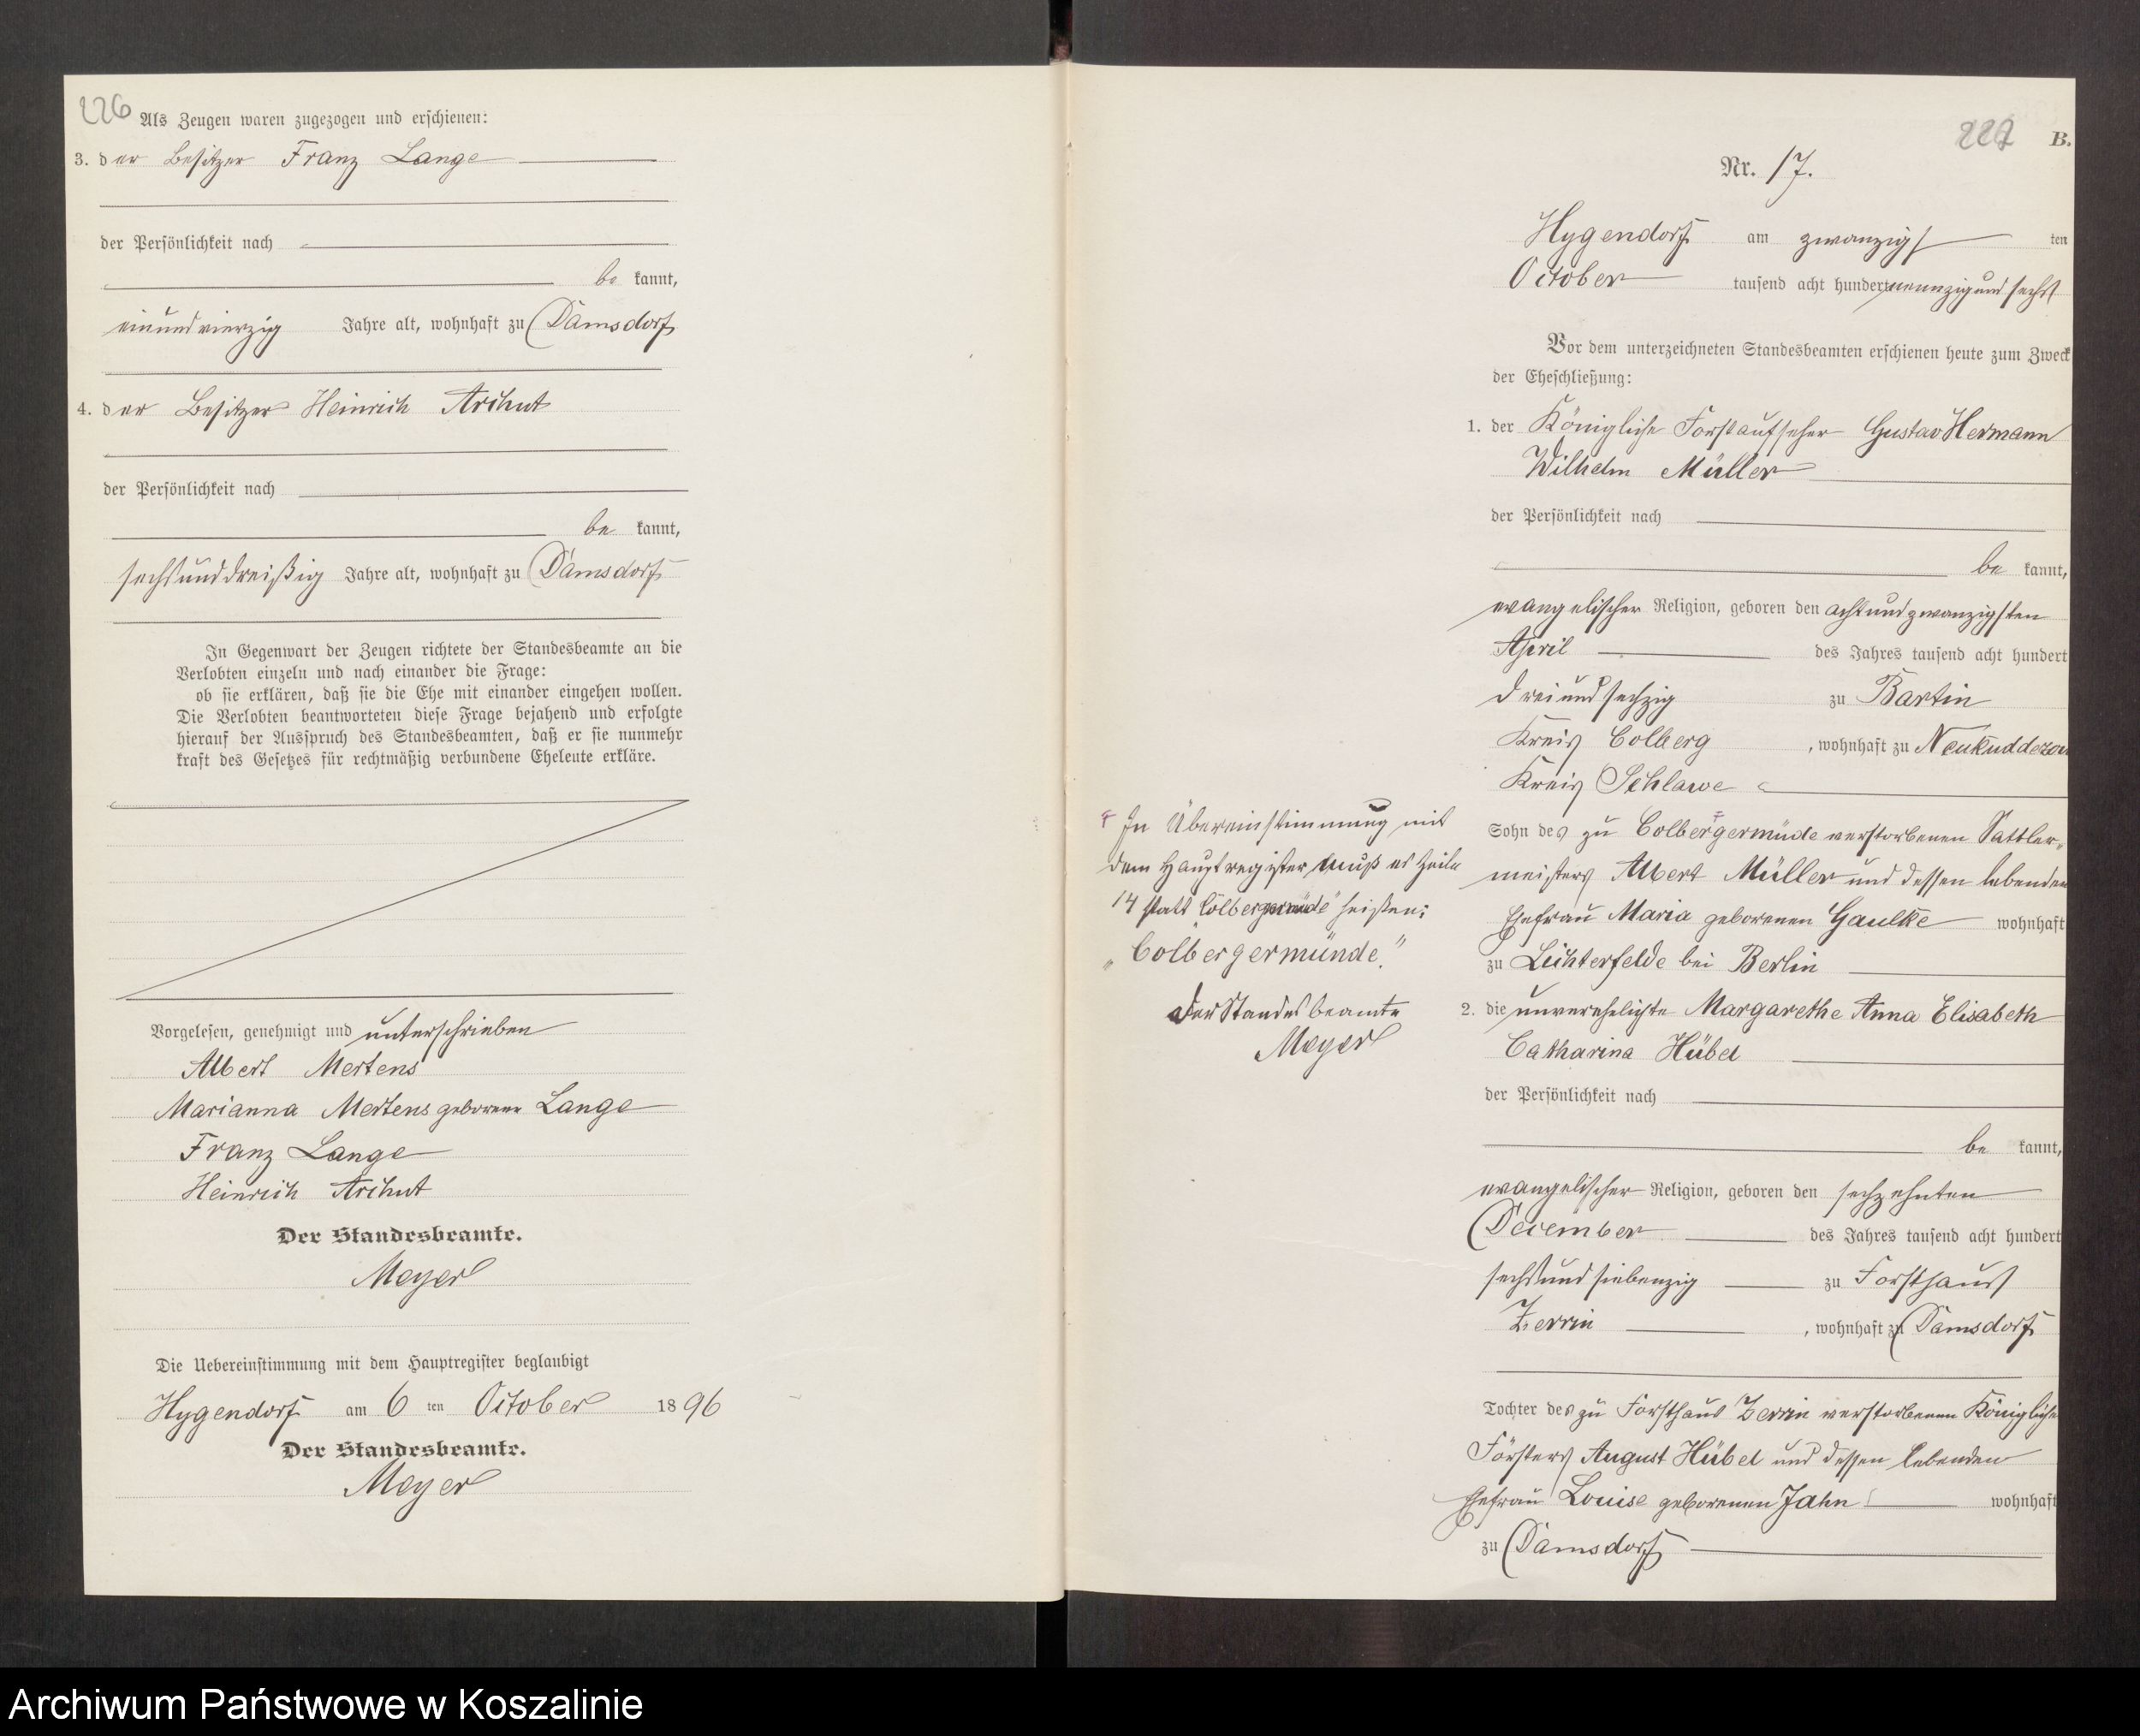 226
Als Zeugen waren zugezogen und erschienen:
3. der Besitzer Franz Lange
der Persönlichkeit nach
be kannt,
einundvierzig Jahre alt, wohnhaft zu Damsdorf
4. der Besitzer Heinrich Archut
der Persönlichkeit nach
be kannt,
sechsunddreißig Jahre alt, wohnhaft zu Damsdorf
In Gegenwart der Zeugen richtete der Standesbeamte an die
Verlobten einzeln und nach einander die Frage:
ob sie erklären, daß sie die Ehe mit einander eingehen wollen.
Die Verlobten beantworteten diese Frage bejahend und erfolgte
hierauf der Ausspruch des Standesbeamten, daß er sie nunmehr
kraft des Gesetzes für rechtmäßig verbundene Eheleute erkläre.
Vorgelesen, genehmigt und unterschrieben
Albert Mertens
Marianna Mertens geborene Lange
Franz Lange
Heinrich Archut
Der Standesbeamte.
Meyer
Die Uebereinstimmung mit dem Hauptregister beglaubigt
Hygendorf am 6 ten October 1896
Der Standesbeamte.
Meyer
227 B.
Nr. 17.
Hygendorf am zwanzigs ten
October tausend acht hundert neunzig und sechs
Vor dem unterzeichneten Standesbeamten erschienen heute zum Zweck
der Eheschließung:
1. der Königliche Forstaufseher Gustav Hermann
Wilhelm Müller
der Persönlichkeit nach
be kannt,
evangelischer Religion, geboren den achtundzwanzigsten
April des Jahres tausend acht hundert
dreiundsechzig zu Bartin
Kreis Colberg, wohnhaft zu Neukuddezow
Kreis Schlawe
Sohn des zu Colbergermüde verstorbenen Sattler-
meisters Albert Müller und dessen lebenden
Ehefrau Maria geborenen Gaulke wohnhaft
zu Lichterfelde bei Berlin
In Übereinstimmung mit
dem Hauptregister muß es Zeile
14 statt "Colbergermüde" heißen:
"Colbergermünde."
Der Standesbeamte
Meyer
2. die unverehelichte Margarethe Anna Elisabeth
Catharina Hübel
der Persönlichkeit nach
be kannt,
evangelischer Religion, geboren den sechzehnten
December des Jahres tausend acht hundert
sechsundsiebenzig zu Forsthaus
Zerrin, wohnhaft zu Damsdorf
Tochter des zu Forsthaus Zerrin verstorbenen Königliche
Försters August Hübel und dessen lebenden
Ehefrau Louise geborenen Jahn wohnhaft
zu Damsdorf
Archiwum Państwowe w Koszalinie